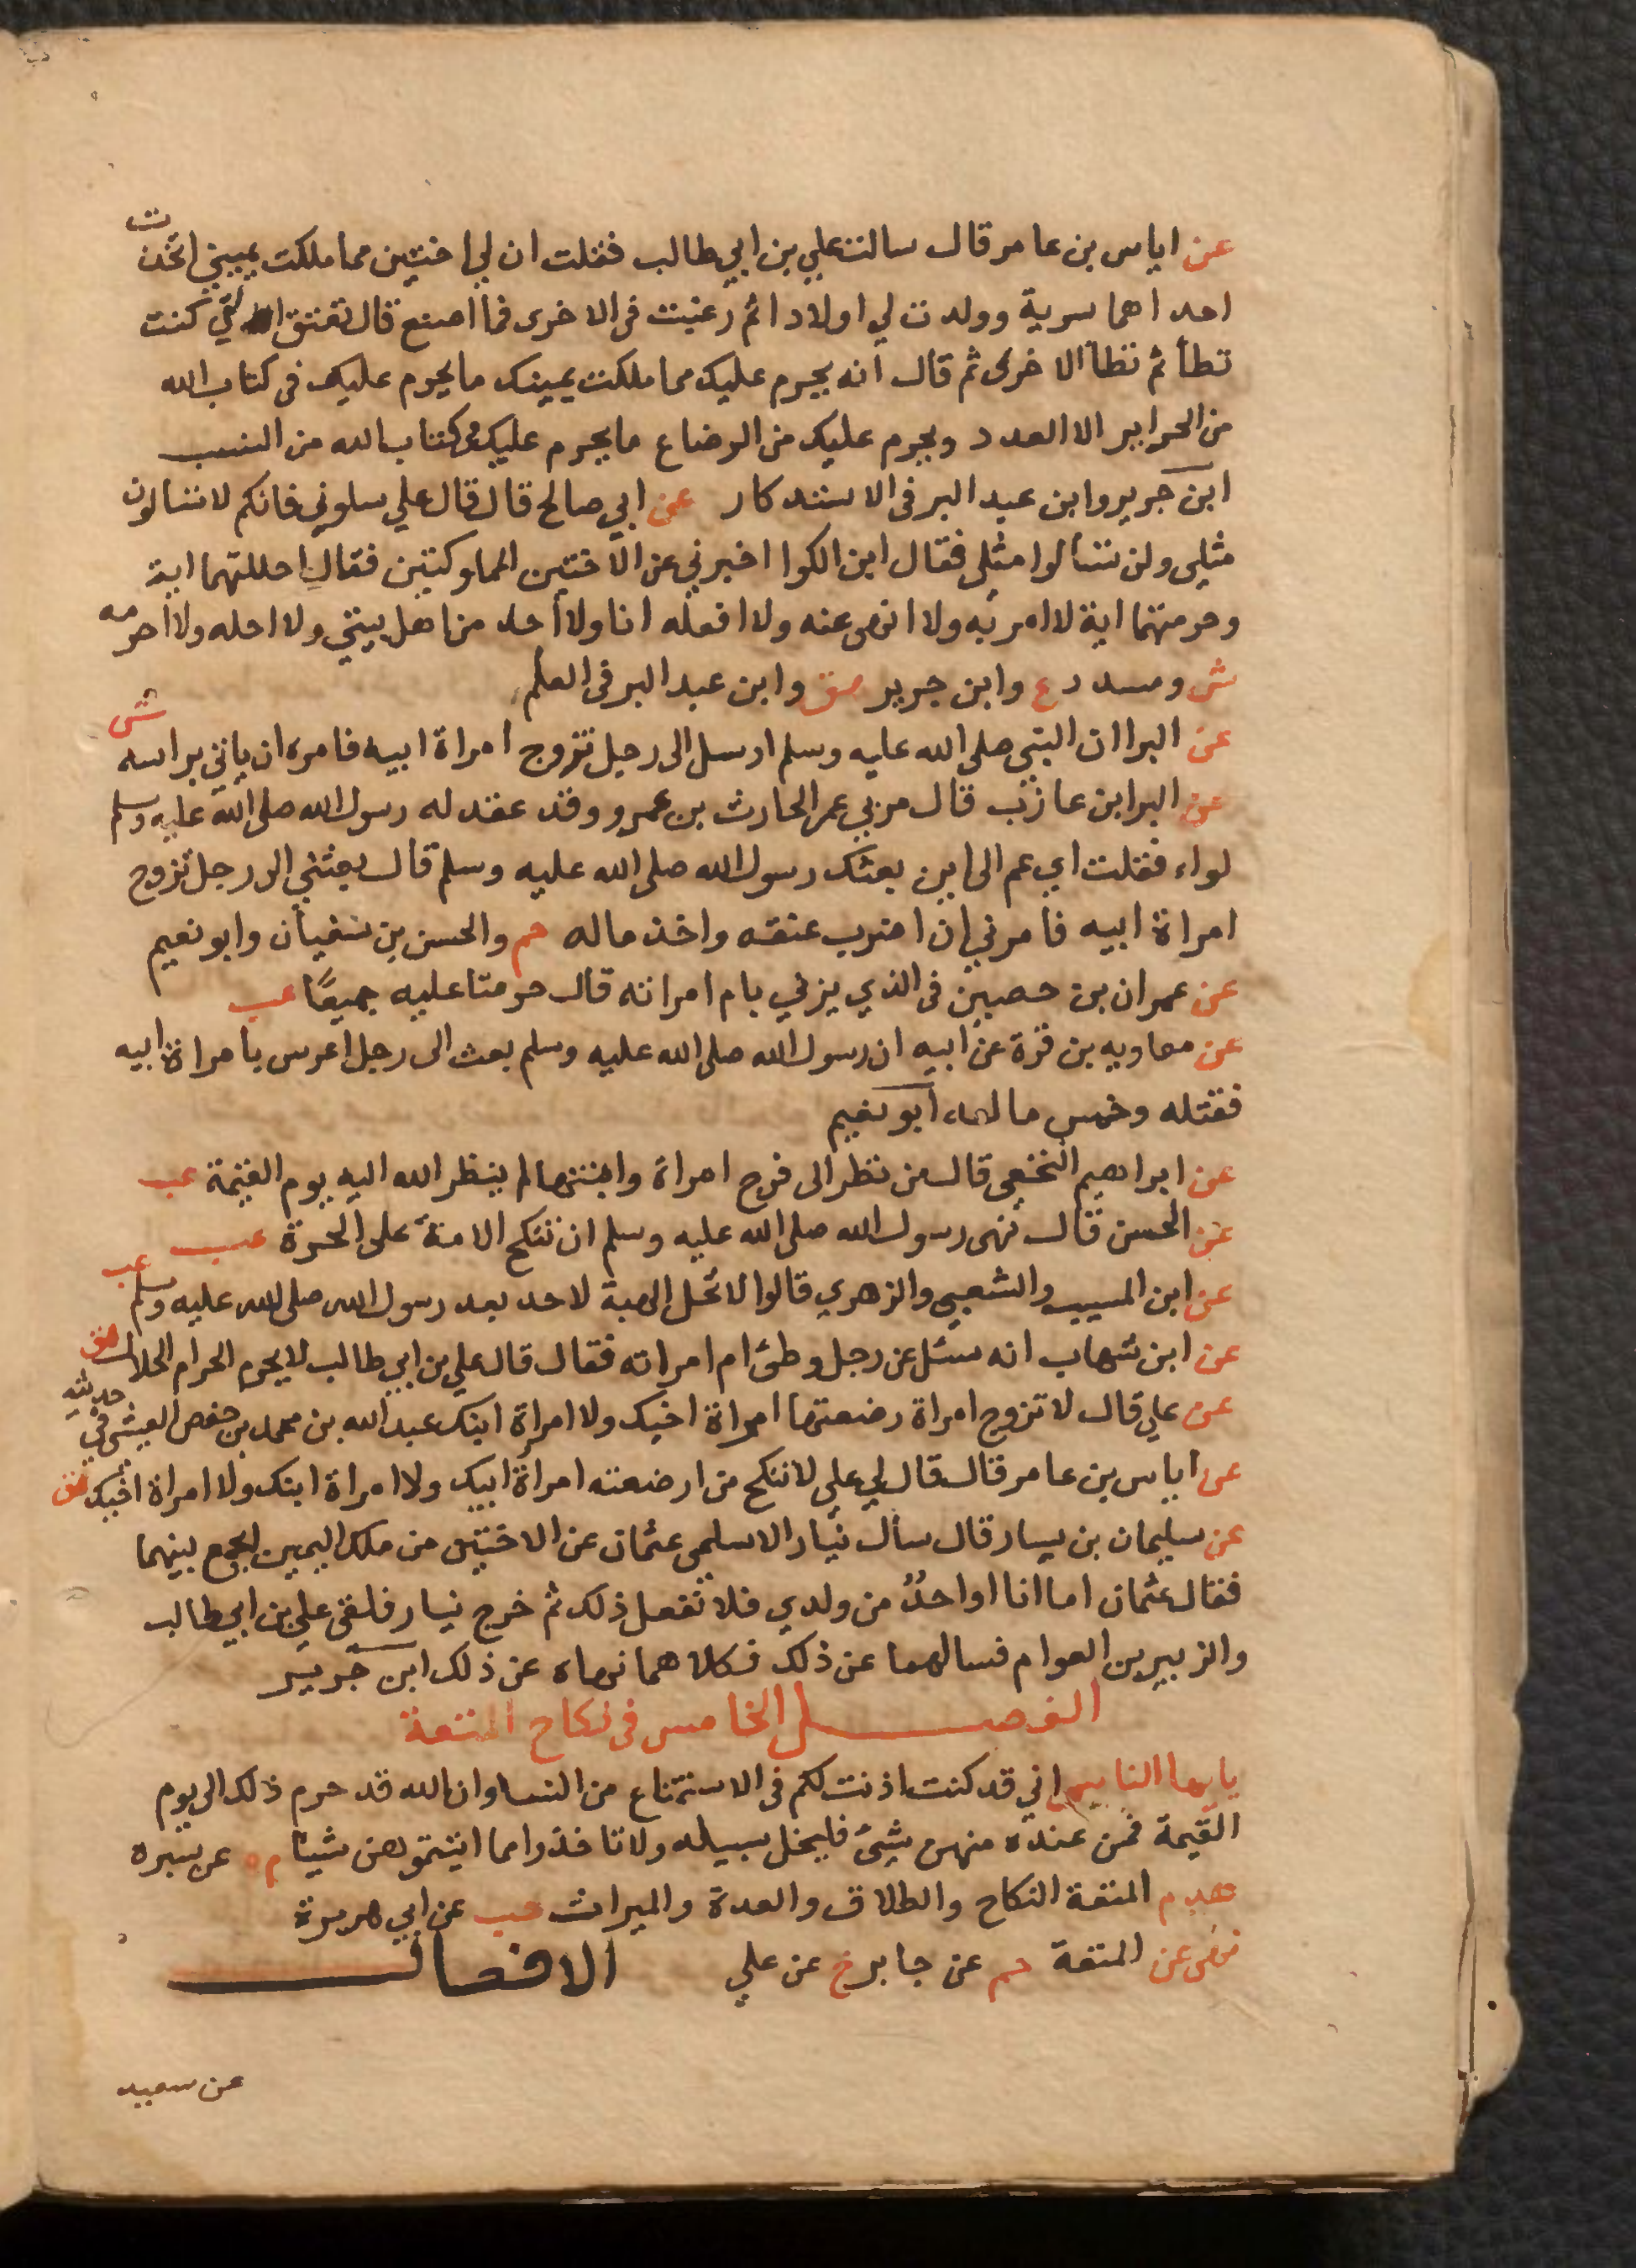 عن اياس بن عامر قال سالت علي بن ابي طالب فقلت ان لي اختين مما ملكت يميني اتخذت
احداهما سرية وولدت لي اولادا ثم رغبت في الاخرى فما اصنع قال تعتق التي كنت
تطأ ثم تطأ الاخرى ثم قال انه يحرم عليك مما ملكت يمينك ما يحرم عليك في كتاب الله
من الحراير الا العدد ويحرم عليك من الرضاع ما يحرم عليك في كتاب الله من النسب
ابن جرير وابن عبد البر في الاستذكار عن ابي صالح قال قال علي سلوني فانكم لا تسالون
مثلي ولن تسألوا مثلي فقال ابن الكوا اخبرني عن الاختين المملوكتين فقال احلتهما اية
وحرمتهما اية لا امر به ولا انهى عنه ولا افعله انا ولا أحد من اهل بيتي ولا احله ولا احرمه
ش ومسدد ع وابن جرير هق وابن عبد البر في العلم
عن البرا ان النبي صلى الله عليه وسلم ارسل الى رجل تزوج امراة ابيه فامره ان ياتي براسه ش
عن البرا بن عازب قال مر بي عمي الحارث بن عمرو وقد عقد له رسول الله صلى الله عليه وسلم
لواء فقلت اي عم الى اين بعثك رسول الله صلى الله عليه وسلم قال بعثني الى رجل تزوج
امراة ابيه فامرني ان اضرب عنقه واخذ ماله حم والحسن بن سفيان وابو نعيم
عن عمران بن حصين في الذي يزني بام امراته قال حرمتا عليه جميعًا عب
عن معاويه بن قرة عن ابيه ان رسول الله صلى الله عليه وسلم بعث الى رجل اعرس بامراة ابيه
فقتله وخمس ماله ابو نعيم
عن ابراهيم النخعي قال من نظر الى فرج امراة وابنتها لم ينظر الله اليه يوم القيمة عب
عن الحسن قال نهى رسول الله صلى الله عليه وسلم ان تنكح الامة على الحرة عب
عن ابن المسيب والشعبي والزهري قالوا لا تحل الهبة لاحد بعد رسول الله صلى الله عليه وسلم عب
عن ابن شهاب انه سئل عن رجل وطئ ام امراته فقال قال علي بن ابي طالب لا يحرم الحرام الحلال هق
عن علي قال لا تزوج امراة رضعتها امراة اخيك ولا امراة ابنك عبد الله بن محمد بن حفص العيشي في حديثه
عن اياس بن عامر قال قال لي علي لا تنكح من ارضعته امرأة ابيك ولا امراة ابنك ولا امراة اخيك هق
عن سليمان بن يسار قال سأل نيار الاسلمي عثمان عن الاختين من ملك اليمين يجمع بينهما
فقال عثمان اما انا او احدٌ من ولدي فلا نفعل ذلك ثم خرج نيار فلقى علي بن ابي طالب
والزبير بن العوام فسالهما عن ذلك فكلاهما نهاه عن ذلك ابن جرير
الفصل الخامس في نكاح المتعة
يايها الناس اني قد كنت اذنت لكم في الاستمتاع من النسا وان الله قد حرم ذلك الى يوم
القيمة فمن عنده منهن شئ فليخل سبيله ولا تاخذوا مما اتيتموهن شيئا م ه عن سبره
هدم المتعة النكاح والطلاق والعدة والميراث حب عن ابي هريرة
نهى عن المتعة حم عن جابر خ عن علي الافعال
عن سعيد